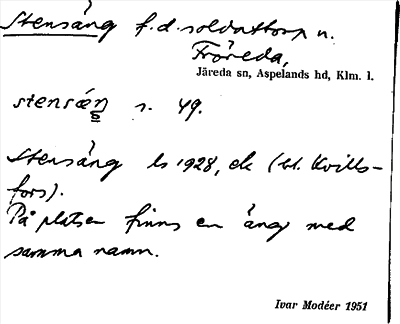 Stensäng f.d. soldattorp u.
Fröreda,
Järeda sn, Aspelands hd, Klm. l.
stensæŋ s. 49.
Stensäng ls 1928, ek (bl. Kvills-
fors).
På platsen finns en äng med
samma namn.
Ivar Modéer 1951